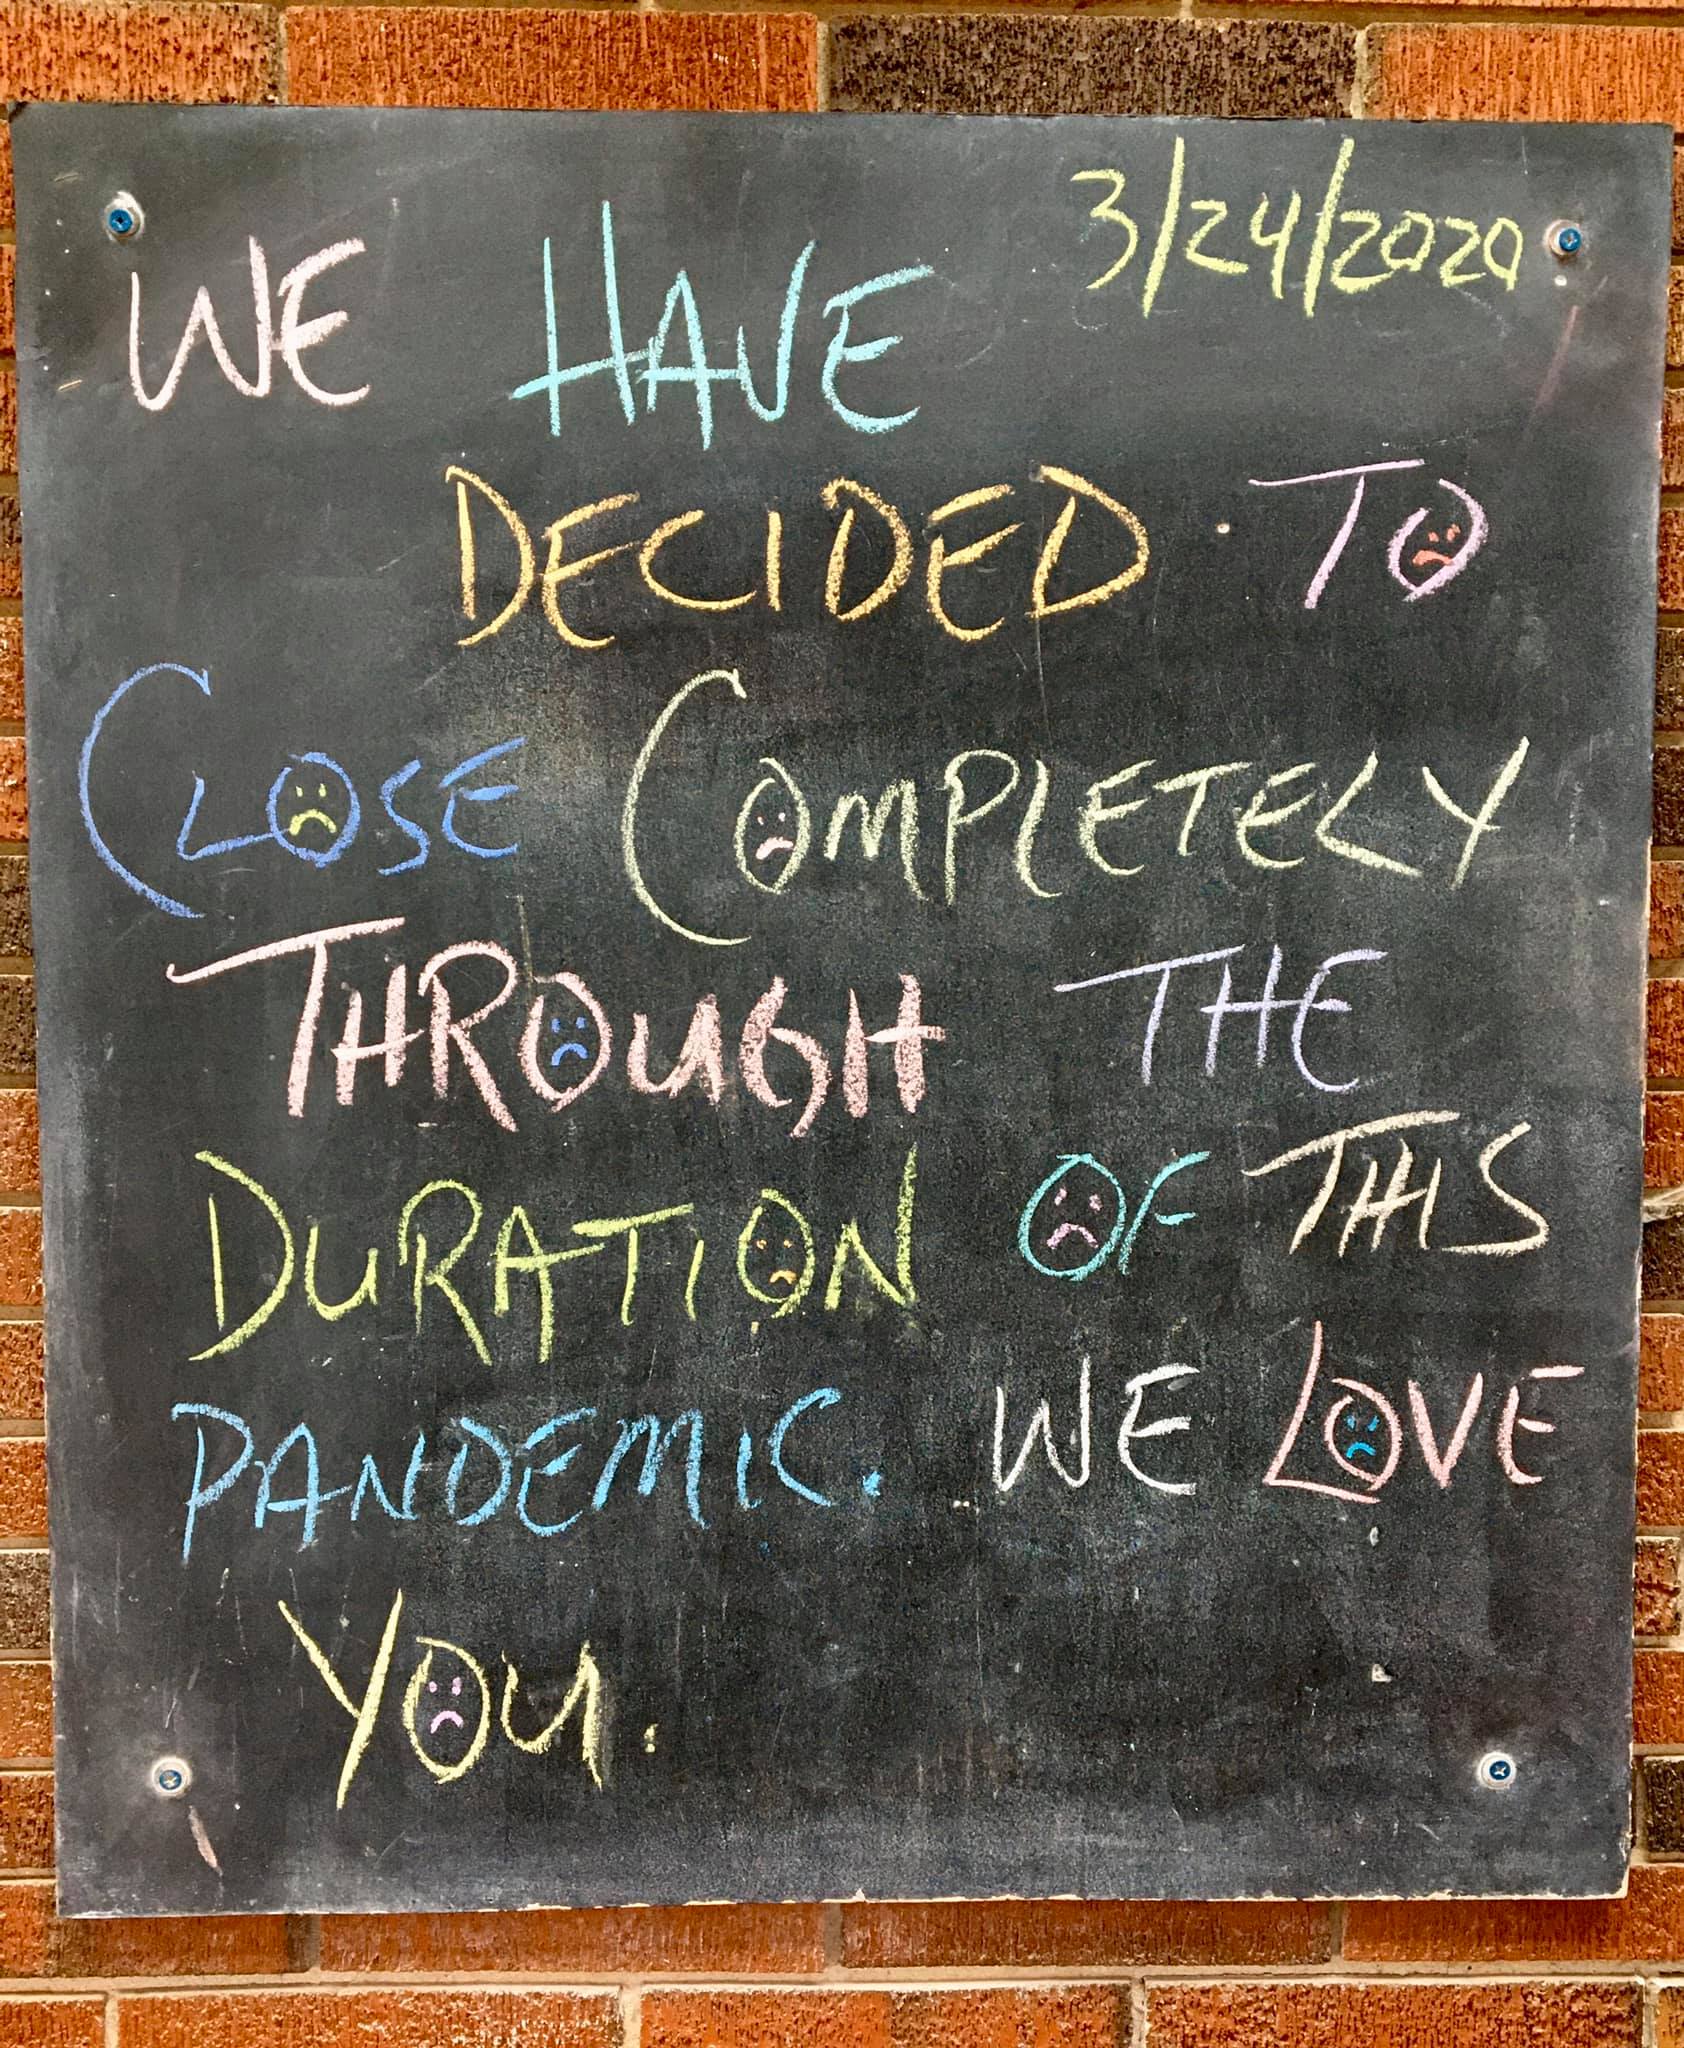 3/24/2020
WE HAVE
DECIDED TO
CLOSE COMPLETELY
THROUGH THE
DURATION OF THIS
PANDEMIC. WE LOVE
YOU.